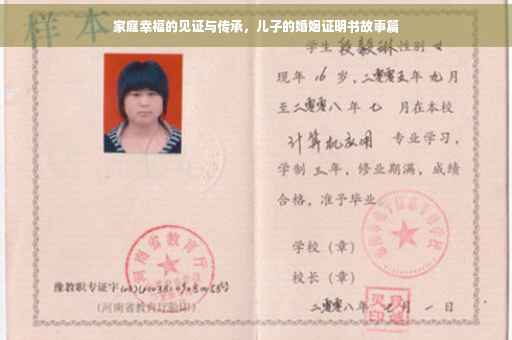 家庭幸福的见证与传承，儿子的婚姻证明书故事篇
样本
学生 段毅琳 性别 女
现年 16 岁，二零零五年 九月
至二零零八年 七 月在本校
计算机应用 专业学习，
学制 三年，修业期满，成绩
合格，准予毕业
学校（章）
校长（章）
二零零八年 七月 一 日
河南省教育厅
豫教职专证字
（河南省教育厅验印）